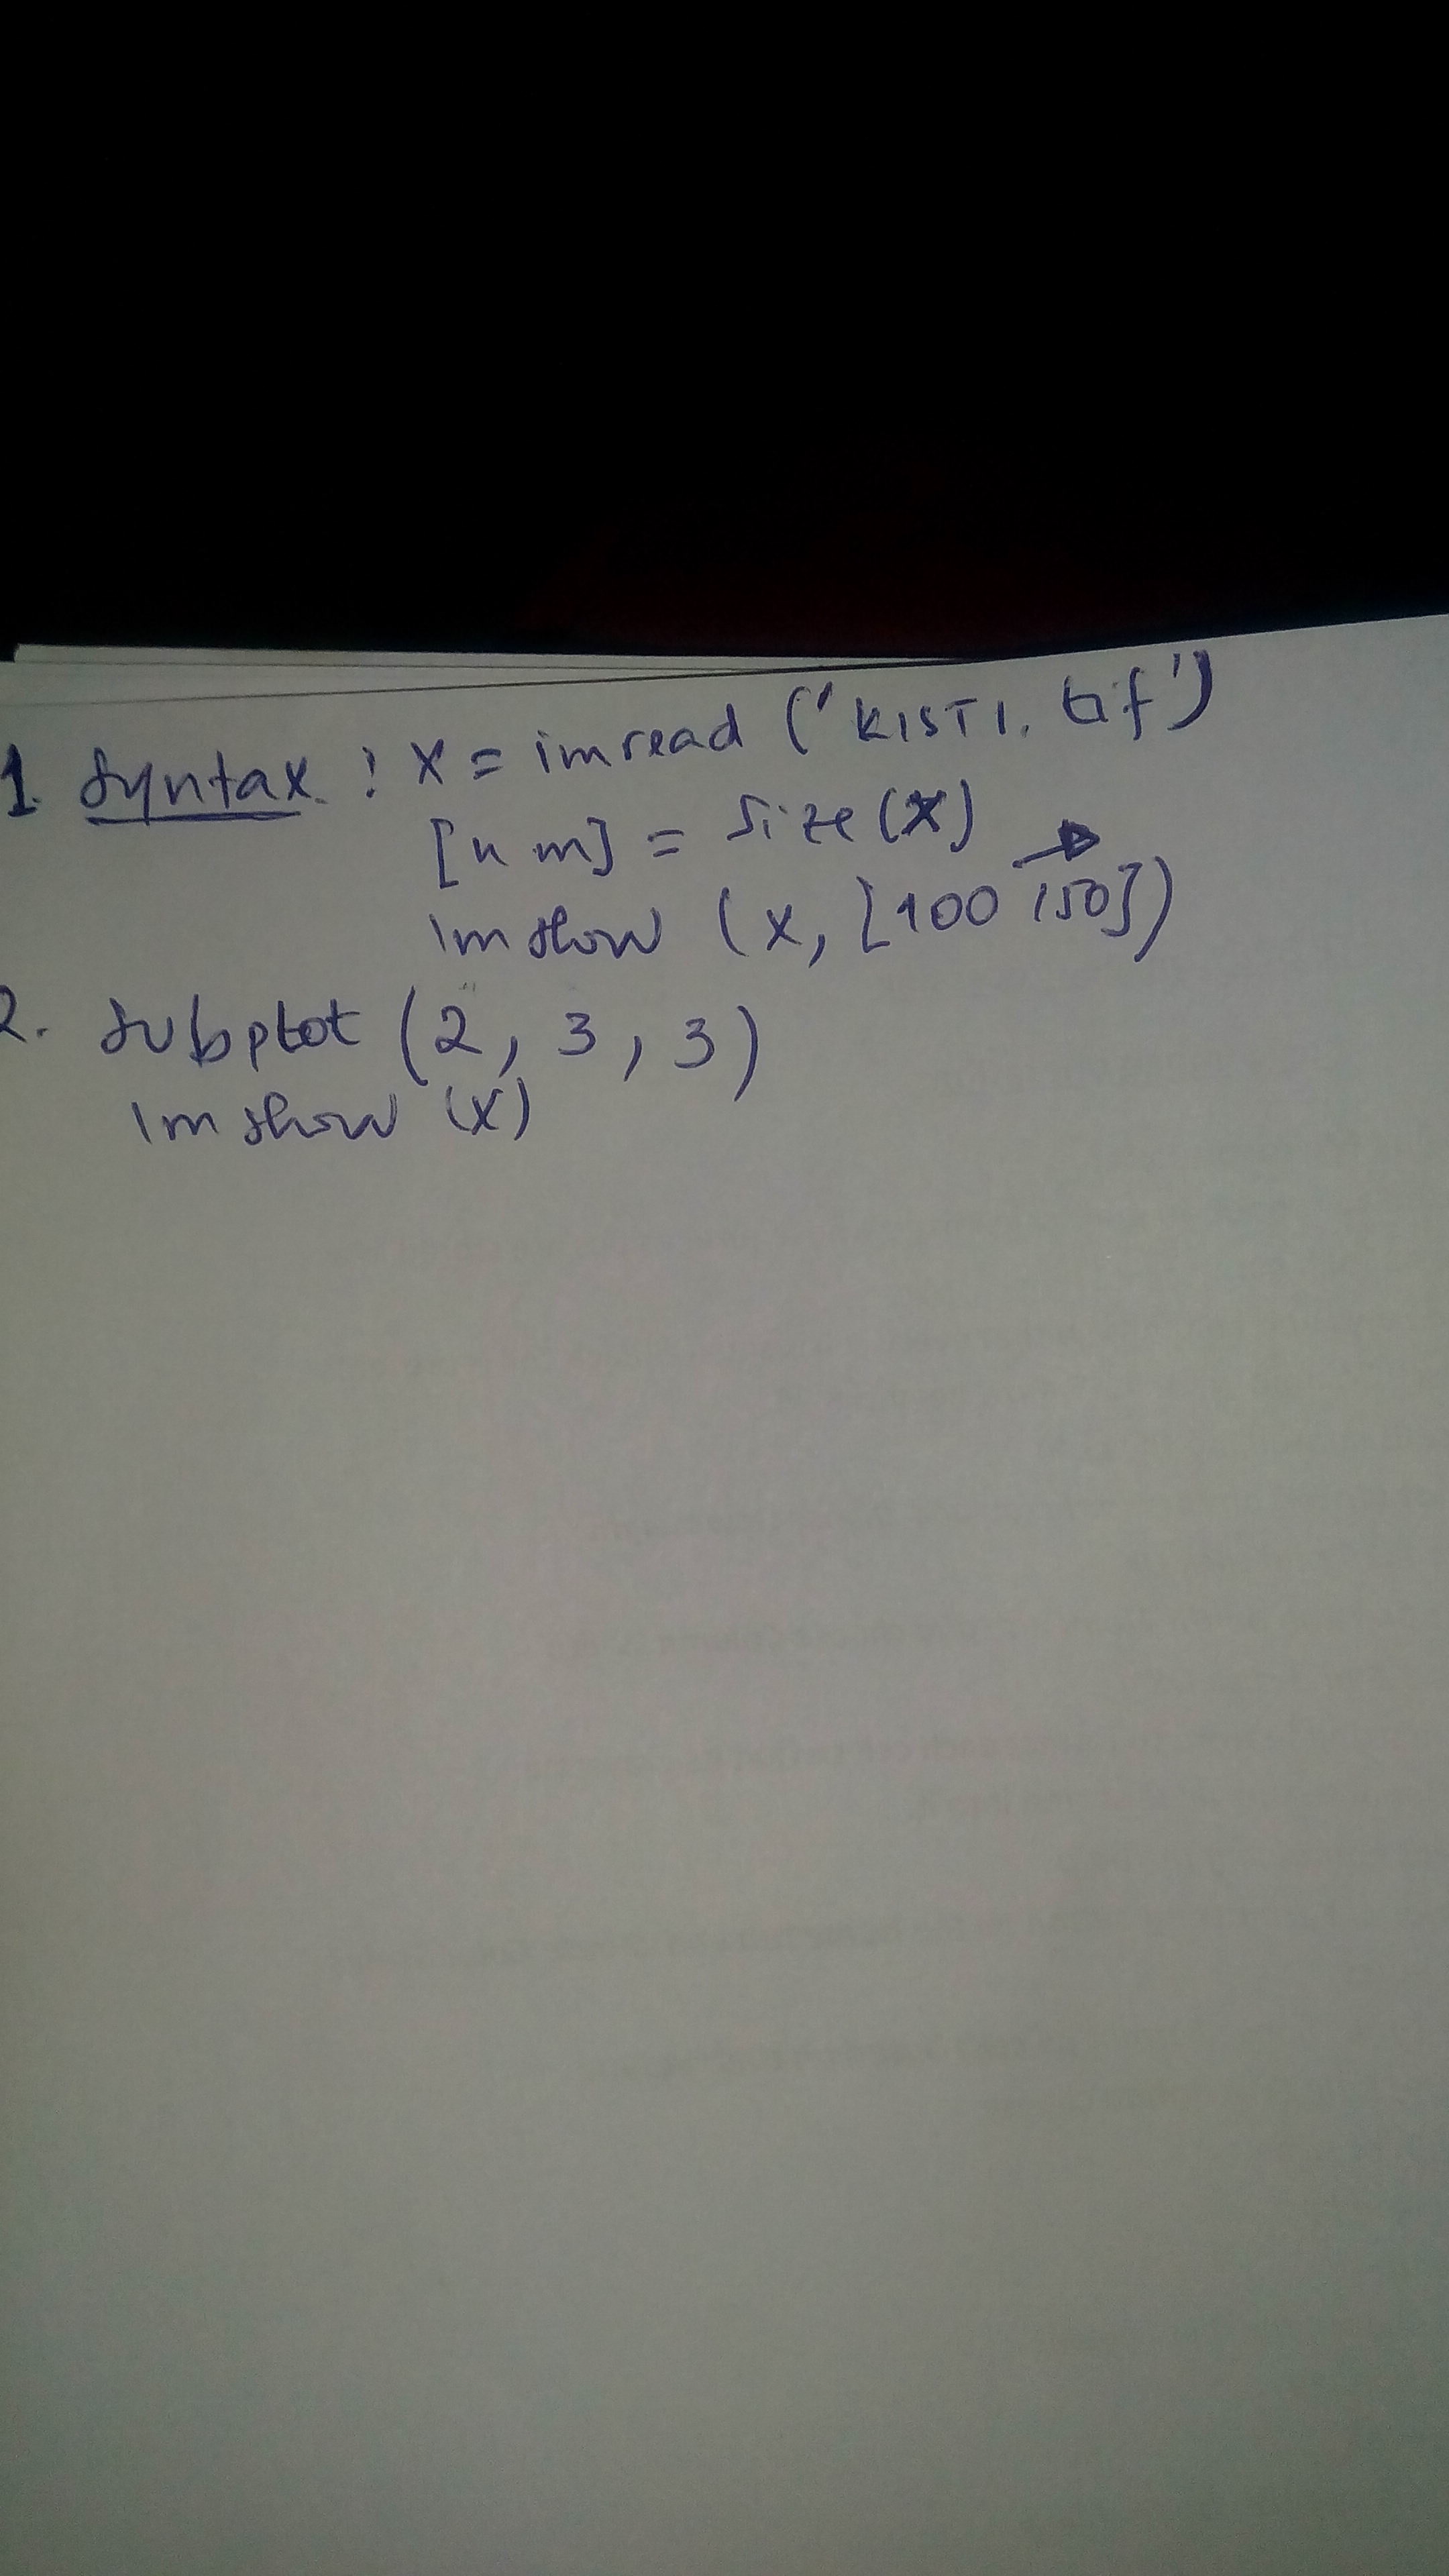 1. Syntax : x = imread ('KIST1.tif')
[n m] = size (x)
imshow (x, [100 150])
2. subplot (2, 3, 3)
imshow (x)